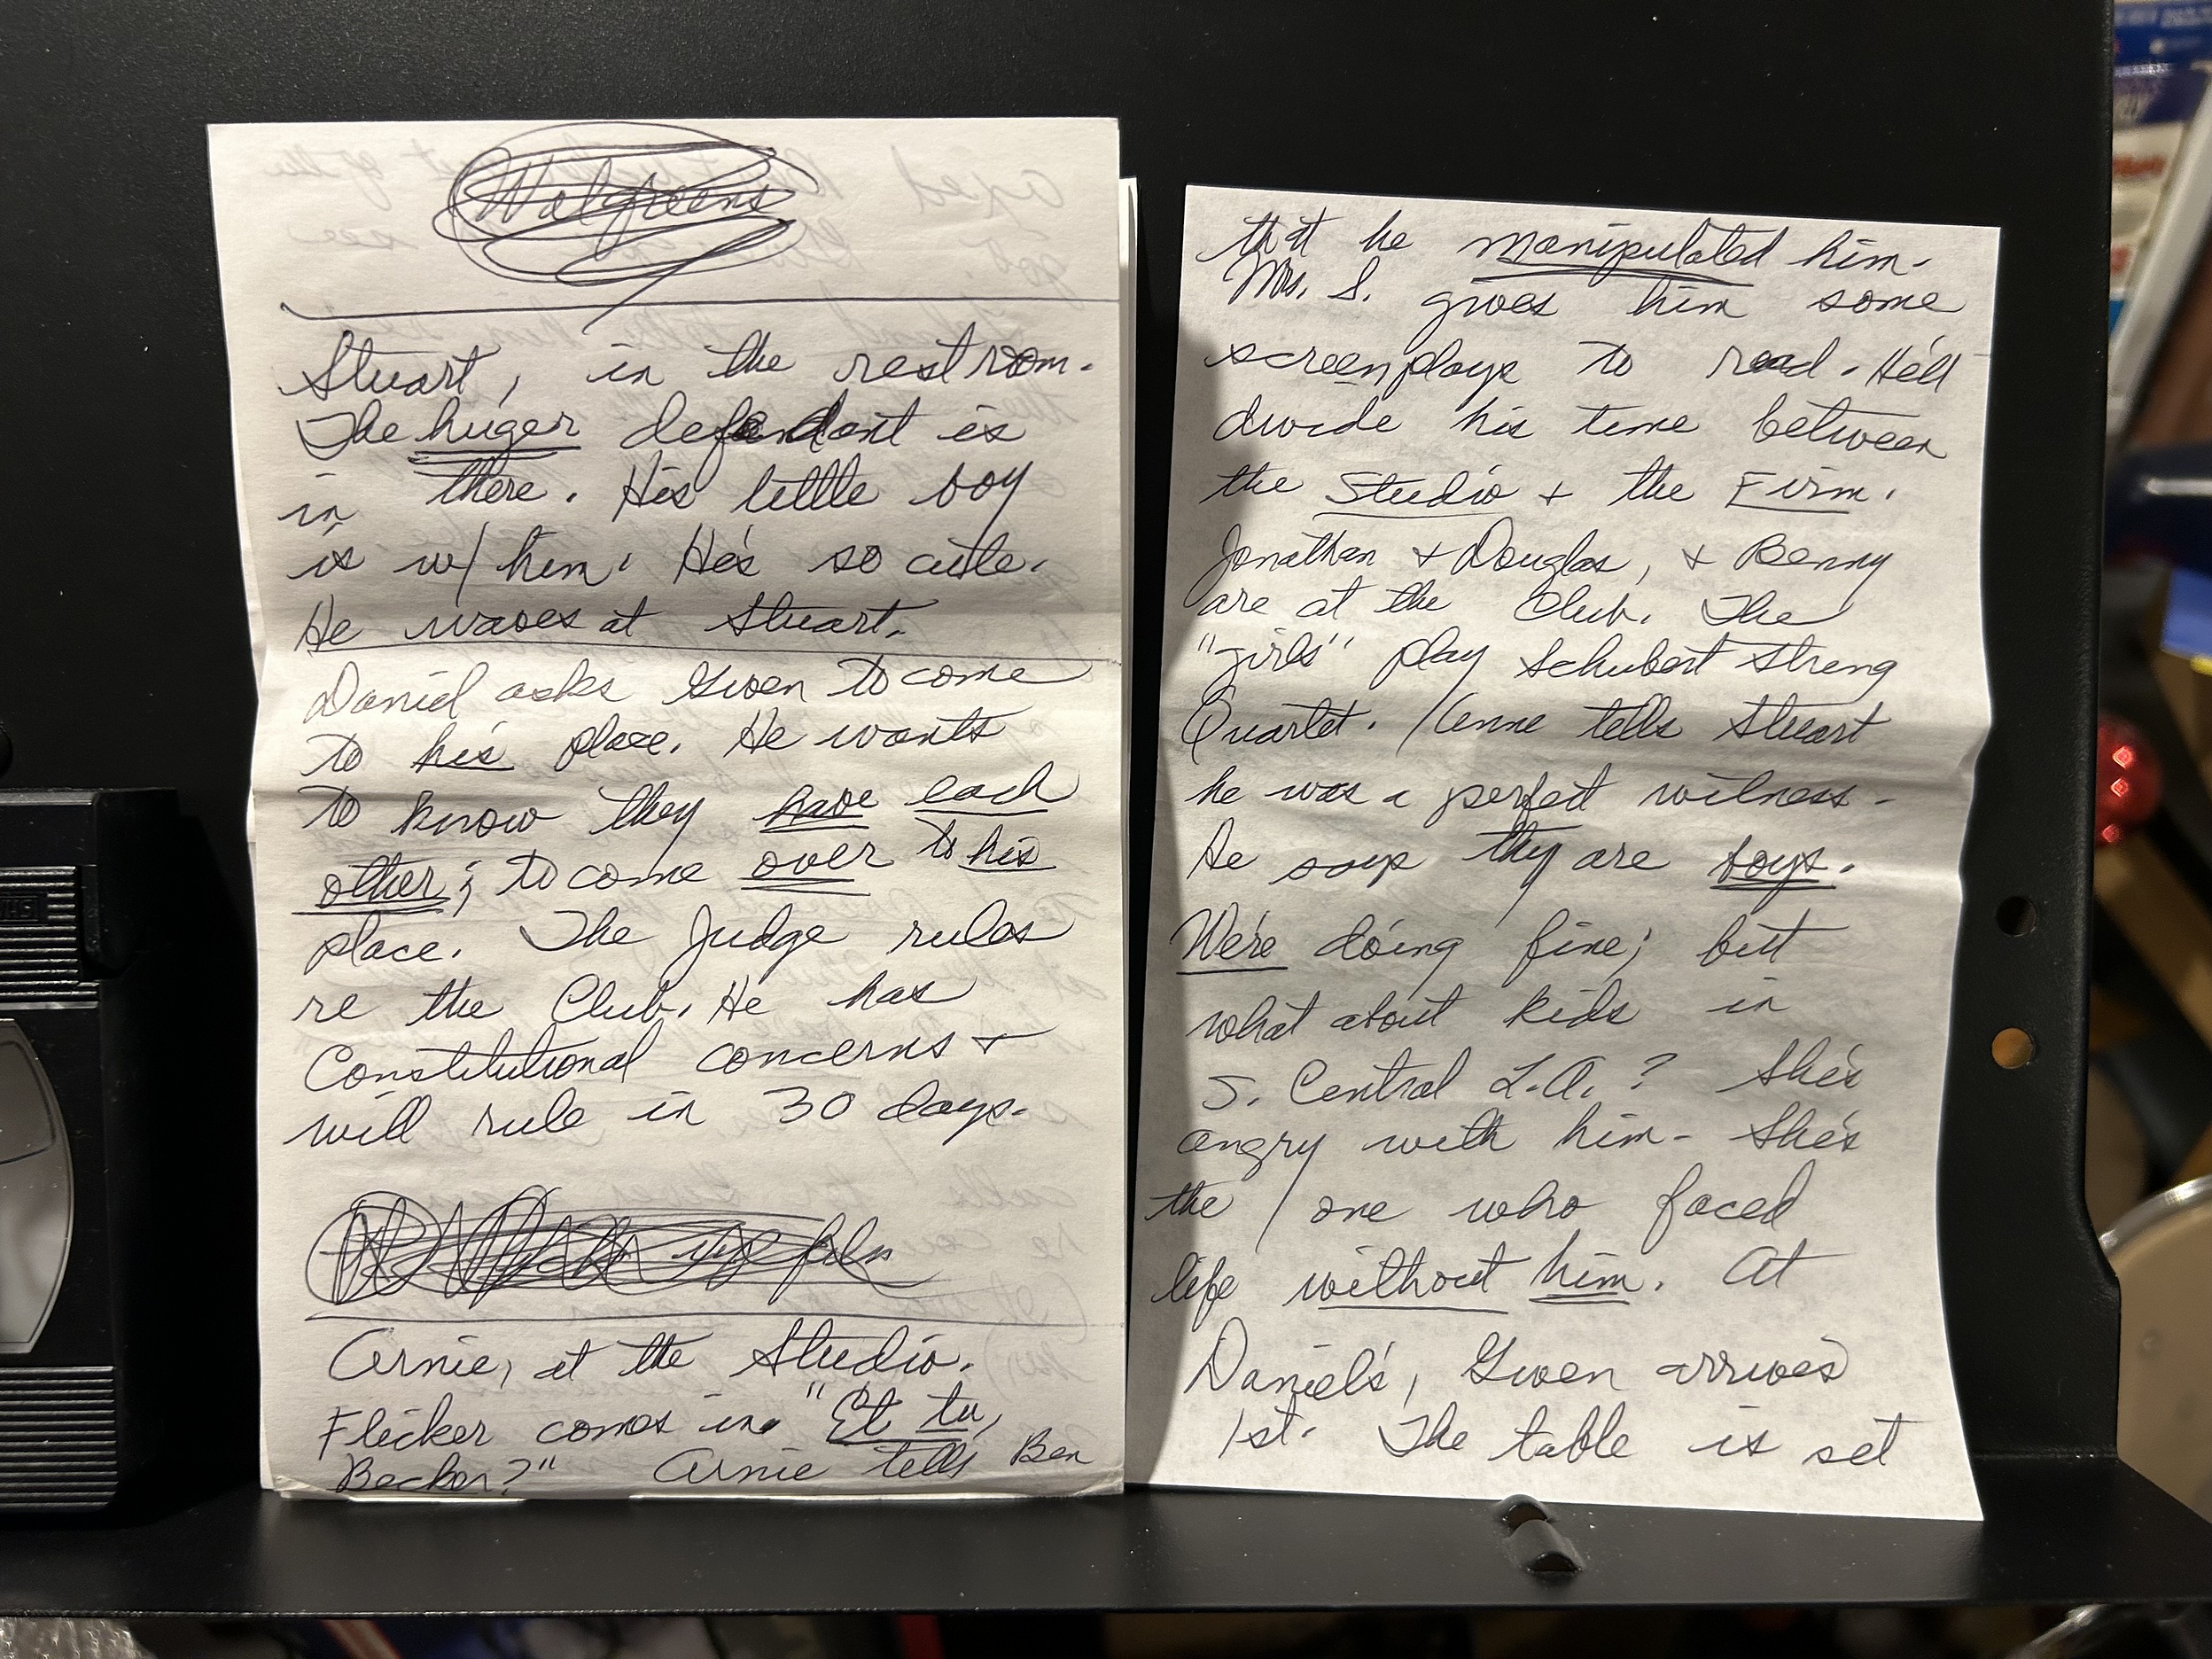 Walgreens
Stuart, in the restroom.
The huger defendant is
in there. His little boy
is w/ him. He's so cute.
He waves at Stuart.
Daniel asks Gwen to come
to his place. He wants
to know they have each
other; to come over to his
place. The Judge rules
re the Club. He has
Constitutional concerns +
will rule in 30 days.
Arnie, at the Studio.
Flicker comes in. "Et tu,
Becker?" Arnie tells Ben
that he manipulated him.
Mrs. S. gives him some
screenplays to read. He'll
divide his time between
the Studio + the Firm.
Jonathan + Douglas, + Benny
are at the Club. The
"girls" play Schubert String
Quartet. / Anne tells Stuart
he was a perfect witness.
He says they are boys.
We're doing fine; but
what about kids in
S. Central L.A.? She's
angry with him - She's
the / one who faced
life without him. At
Daniel's, Gwen arrives
1st. The table is set